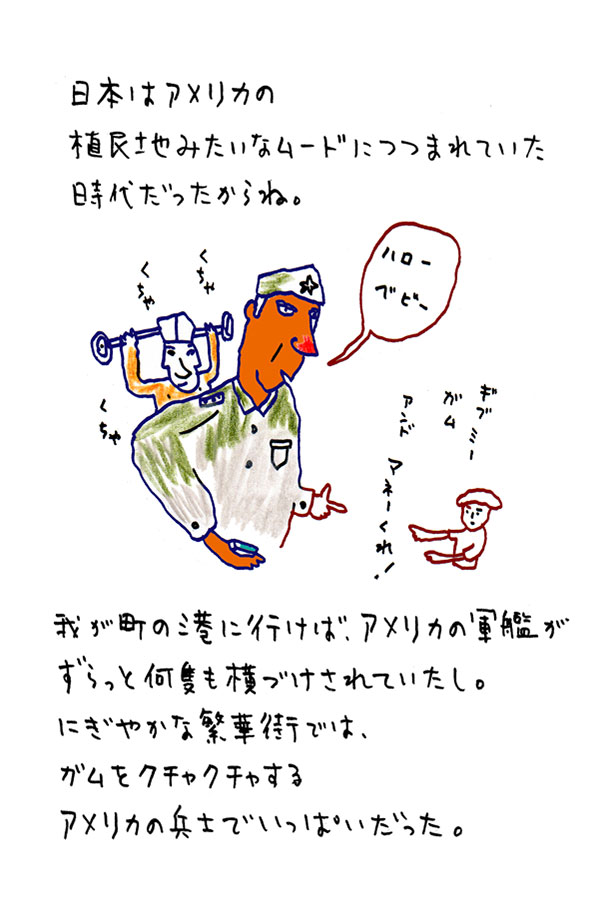 日本はアメリカの
植民地みたいなムードにつつまれていた
時代だったからね。
ハロー
ブビー
くちゃ
くちゃ
くちゃ
ギブミー
ガム
アンド
マネーくれ!
我が町の港に行けば、アメリカの軍艦が
ずらっと何隻も横づけされていたし。
にぎやかな繁華街では、
ガムをクチャクチャする
アメリカの兵士でいっぱいだった。